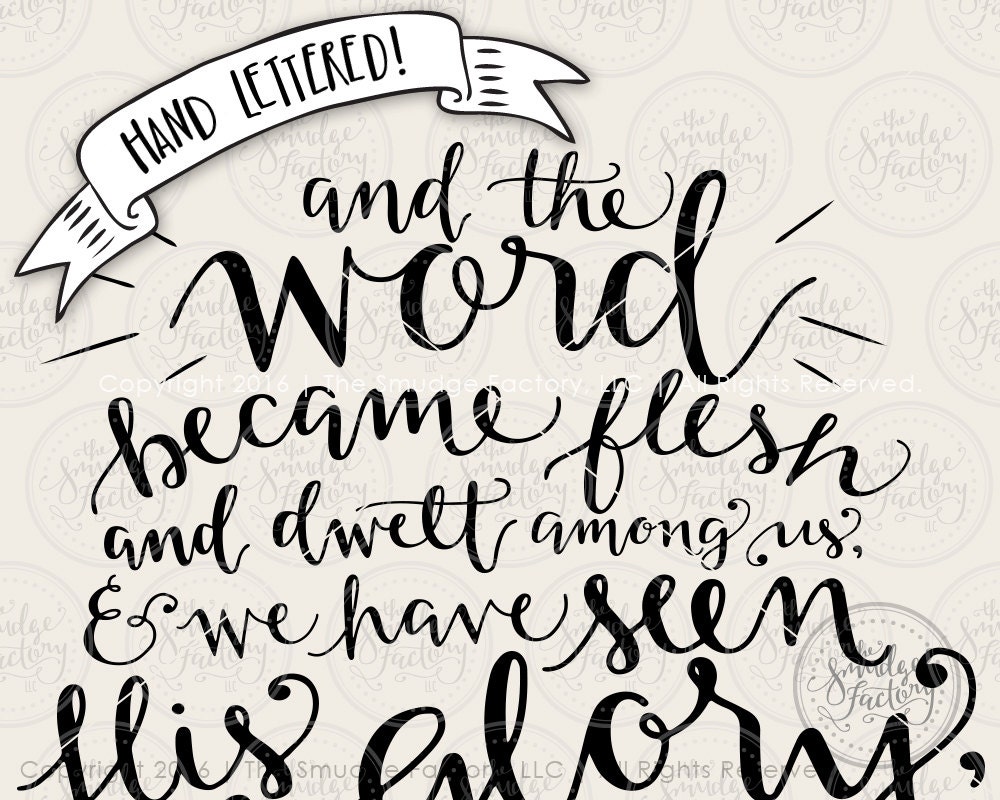 HAND LETTERED!
and the
word
became flesh
Copyright 2016 | The Smudge Factory, LLC | All Rights Reserved.
and dwelt among us,
& we have seen
His glory,
the Smudge Factory LLC
Copyright 2016 | The Smudge Factory, LLC | All Rights Reserved.